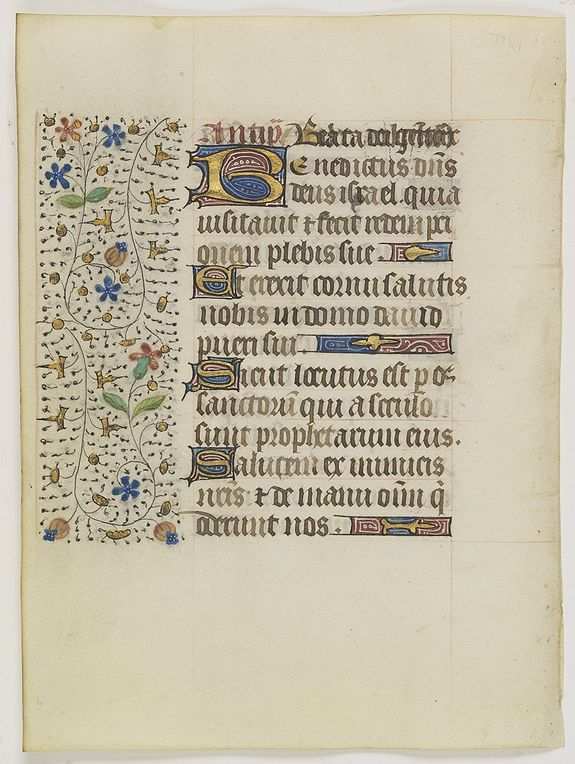 Antiph̄
Benedictus dn̄s
deus israel quia
uisitauit ⁊ fecit redempti
onem plebis sue.
Et erexit cornu salutis
nobis in domo dauid
pueri sui.
Sicut locutus est p os
sanctorū qui a seculo
sunt prophetarum eius.
Salutem ex inimicis
nr̄is ⁊ de manu om̄ q̄
oderunt nos.